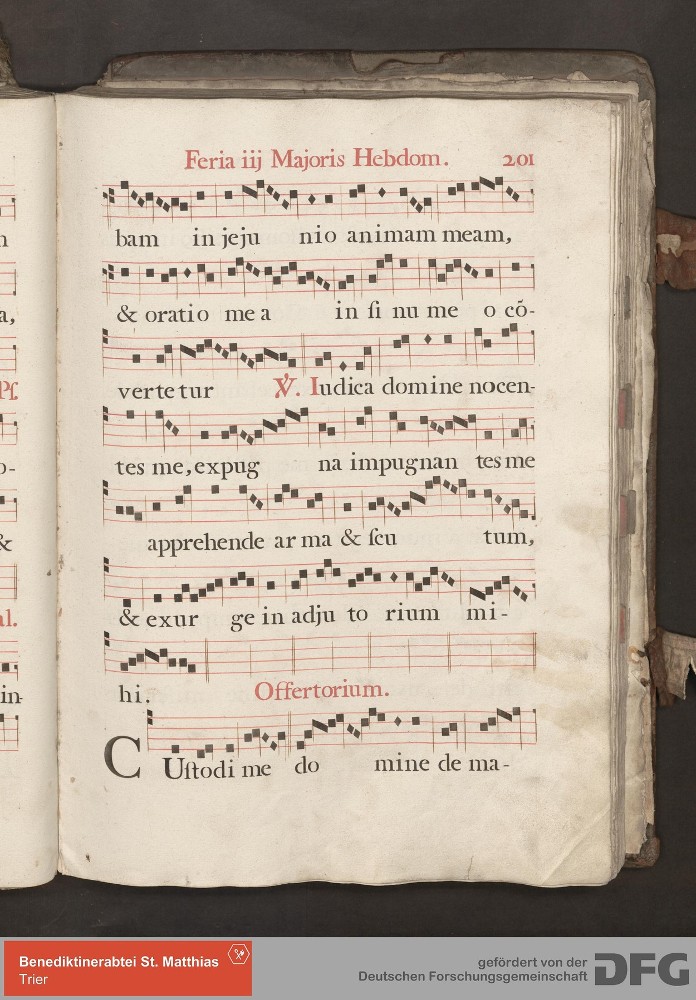 Feria iij Majoris Hebdom. 201
bam in jeju nio animam meam,
& oratio mea in ſinu me o cō-
a,
vertetur ℣. Iudica domine nocen-
Pſ.
tes me, expug na impugnan tes me
o-
apprehende arma & ſcu tum,
&
& exur ge in adju to rium mi-
al.
hi. Offertorium.
in-
CUſtodi me do mine de ma-
Benediktinerabtei St. Matthias
Trier
gefördert von der
Deutschen Forschungsgemeinschaft
DFG